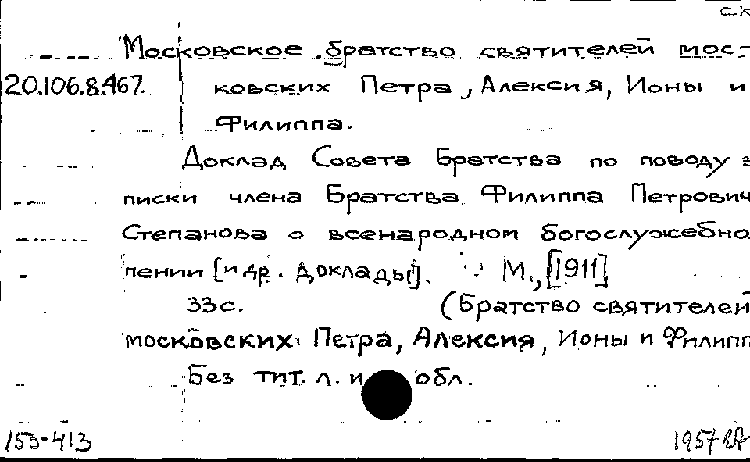 ск
Московское братство святителей мос-
20.106.8.467. ковских Петра, Алексия, Ионы и
Филиппа.
Доклад Совета Братства по поводу з
писки члена Братства Филиппа Петрович
Степанова о всенародном богослужебно
пении [и др. доклады]. М., [1911]
33с. (Братство святителей
московских Петра, Алексия, Ионы и Филипп
Без тит. л. и обл.
153-413